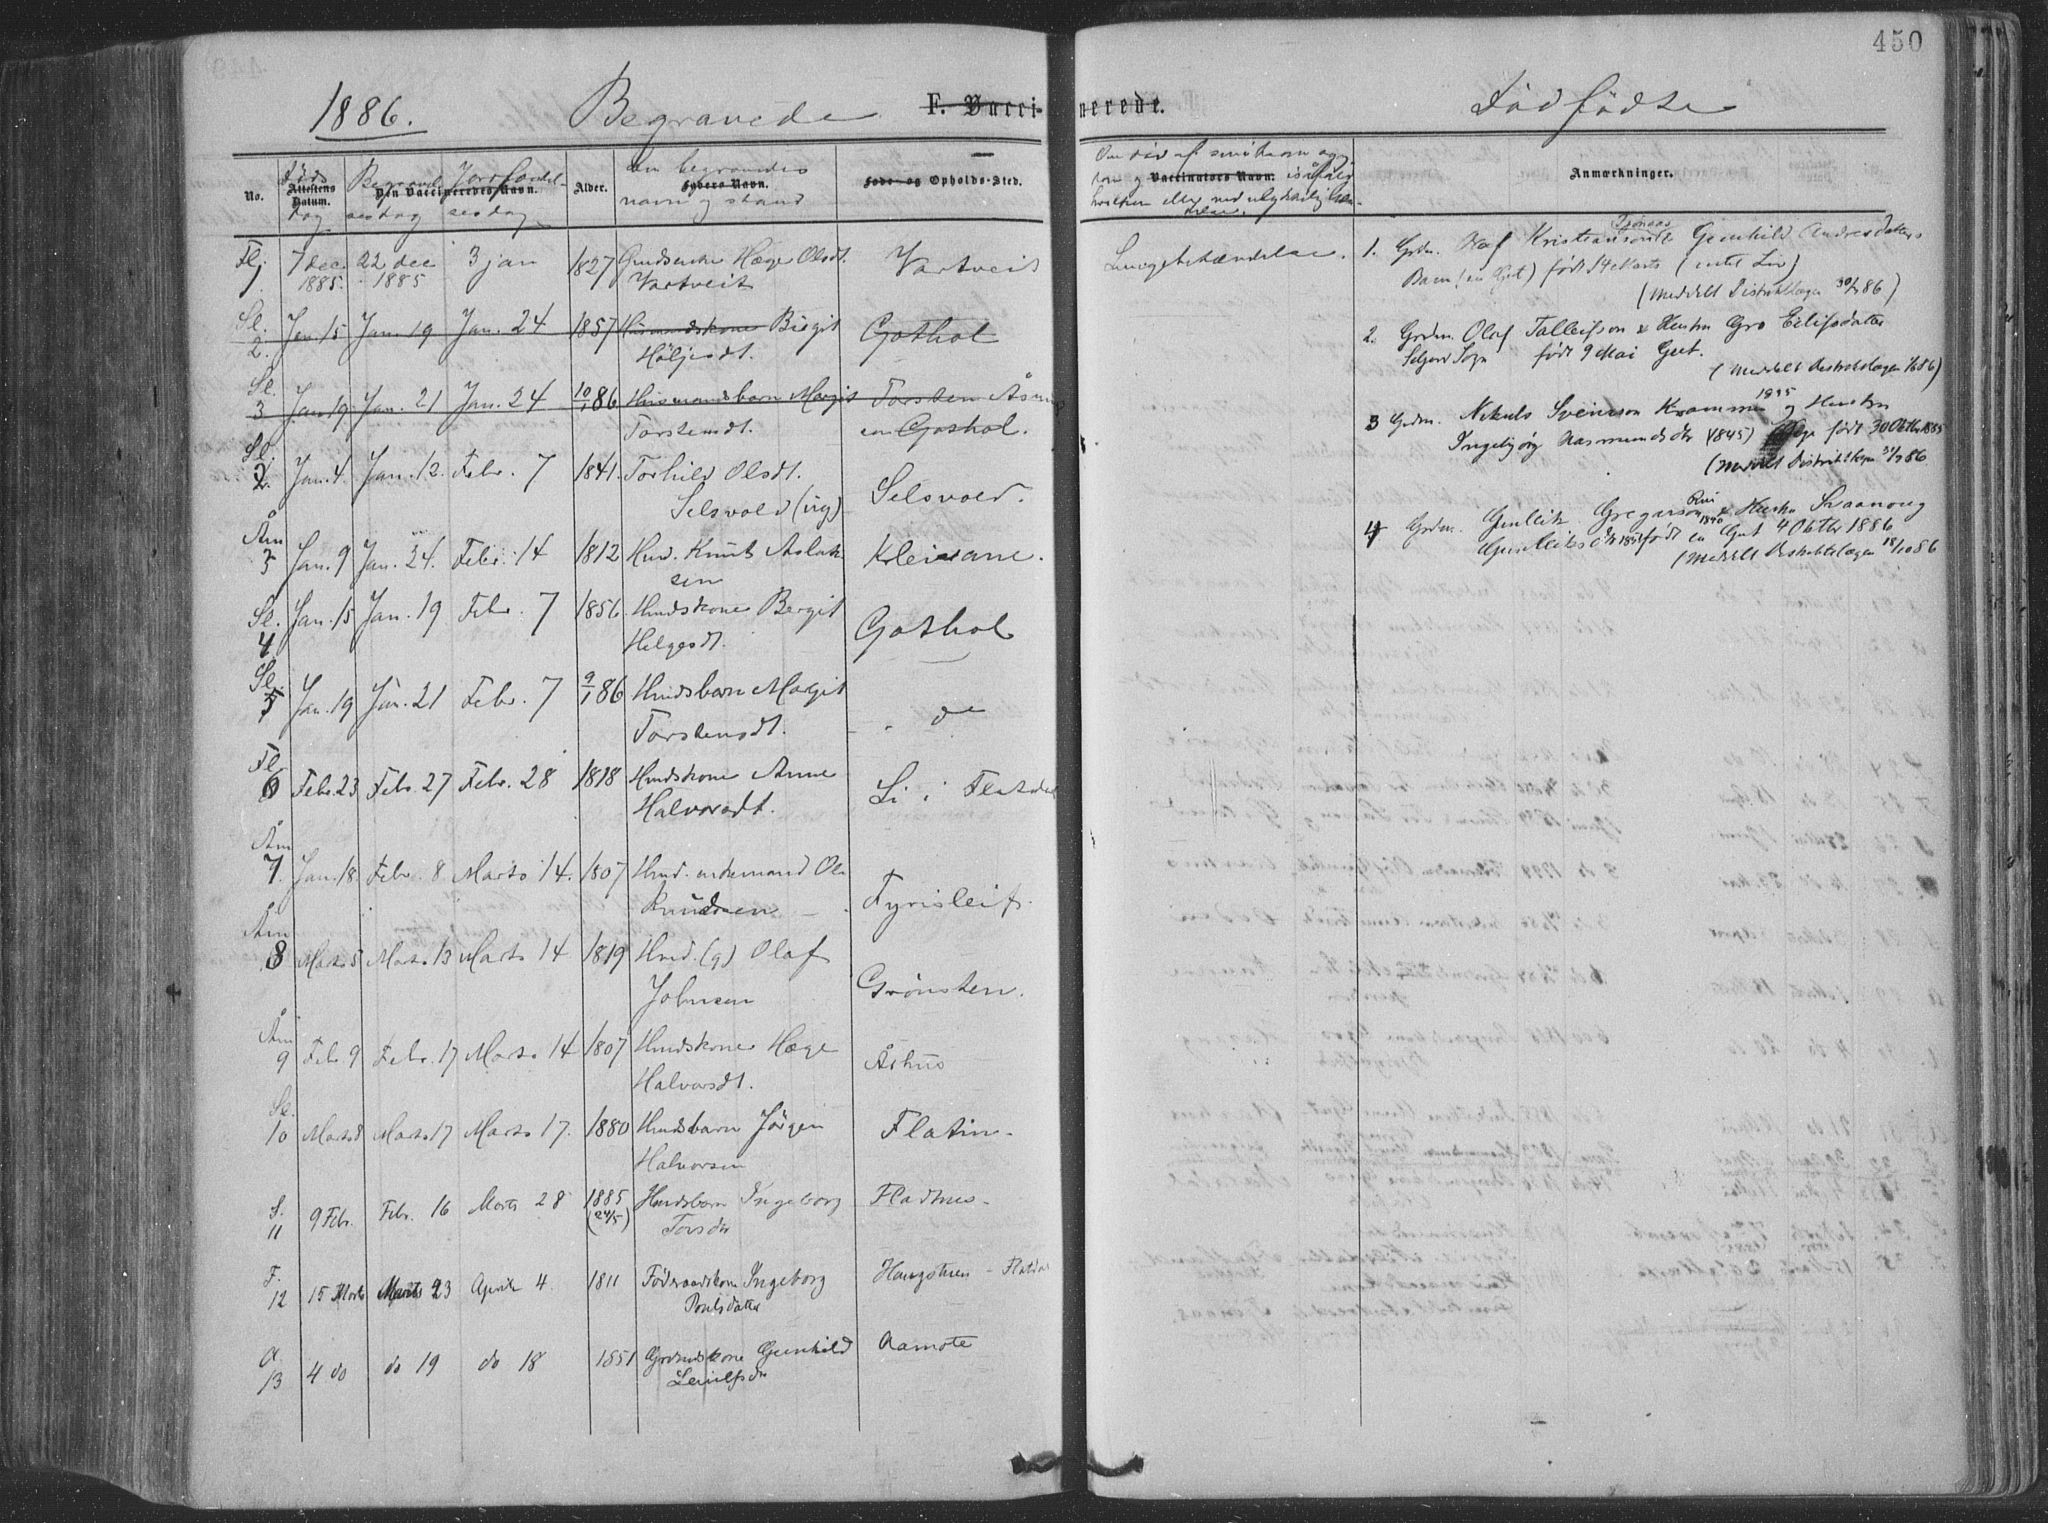 450
1886.
Begravede
F. Vaccinerede.
Dødfødte
No.
Døds
Attestens
Datum.
dag
Begravel
Den Vaccineredes Navn.
sesdag
Jordfædel-
sesdag
Alder.
den begravedes
Fybers Navn.
navn og stand
Føde- og Opholds-Sted.
Om død af
Vaccinators Navn.
Anmærkninger.
Fl. 1 7 dec. 1885. 22 dec 1885 3 jan 1827 Hæge Olsdt. Vartveit Vartveit Lungebetændelse.
Sl. 2. Jan. 15 Jan. 19 Jan. 24 1857 Husmandskone Birgit Höljesdt. Gothol
Sl. 3 Jan. 19 Jan. 21 Jan. 24 10/1 86 Husmandsbarn Margit Torstensdt. Torsten Goshol.
Sl. 2. Jan. 4. Jan. 12. Febr. 7 1841. Torhild Olsdt. Selsvold (ug) Selsvold.
Åm 3 Jan. 9 Jan. 24. Febr. 14 1812 Hmd. Knut Aslaksen Kleivane.
Sl. 4 Jan. 15 Jan. 19 Febr. 7 1856. Hmdskone Bergit Helgesdt. Goshol
Sl. 5 Jan. 19 Jan. 21 Febr. 7 9/1 86 Hmdsbarn Margit Torstensdt. do
Fl 6 Febr. 23 Febr. 27 Febr. 28 1818 Hmdskone Anne Halvorsdt. Li i Flatdal
Åm 7. Jan. 18. Febr. 8 Marts 14. 1807 Hmd. enkemand Ole Knudsen Fyrisleif.
Åm 8 Marts 5 Marts 13 Marts 14 1819 Hmd. (g) Olaf Johnsen Grønsten.
Åm 9 Febr 9 Febr. 17 Marts 14 1807 Hmdskone Hæge Halvorsdt. Åshus
Sl. 10 Marts 8 Marts 17 Marts 17. 1880 Hmdsbarn Jörgen Halvorsen Flatin.
S. 11 9 Febr. Febr. 16 Marts 28 1885 (24/5) Hmdsbarn Ingeborg Torsdr Fladhus
F. 12 15 Marts Marts 23 April 4 1811 Föderaadskone Ingeborg Poulsdatter Haugstuen - Flatdal
A. 13 4 do do 19 do 18 1851 Grdmdskone Gunhild Leiulfsdr Aamote
1. Grdm. Olaf Kristiansen & Gunhild Andresdatters
Barn (en Gut) født 14 Marts (intet Liv)
(meddelt Distriktslægen 30/3 86)
2. Grdm. Olaf Talleifson & Hustru Gro Eilifsdatter
Seljord Sogn født 9 Mai Gut.
(Meddelt Distriktslægen 1/6 86)
3 Grdm. Svenson og Hustru
Ingebjørg Aasmundsdtr (1845) født 30 Oktbr 1885
(Meddelt Distriktslægen
4 Grdm. Gunleik Gregarson & Hustru
Gunleiksdtr født en Gut 4 Oktbr 1886
(Meddelt Distriktslægen 18/10 86